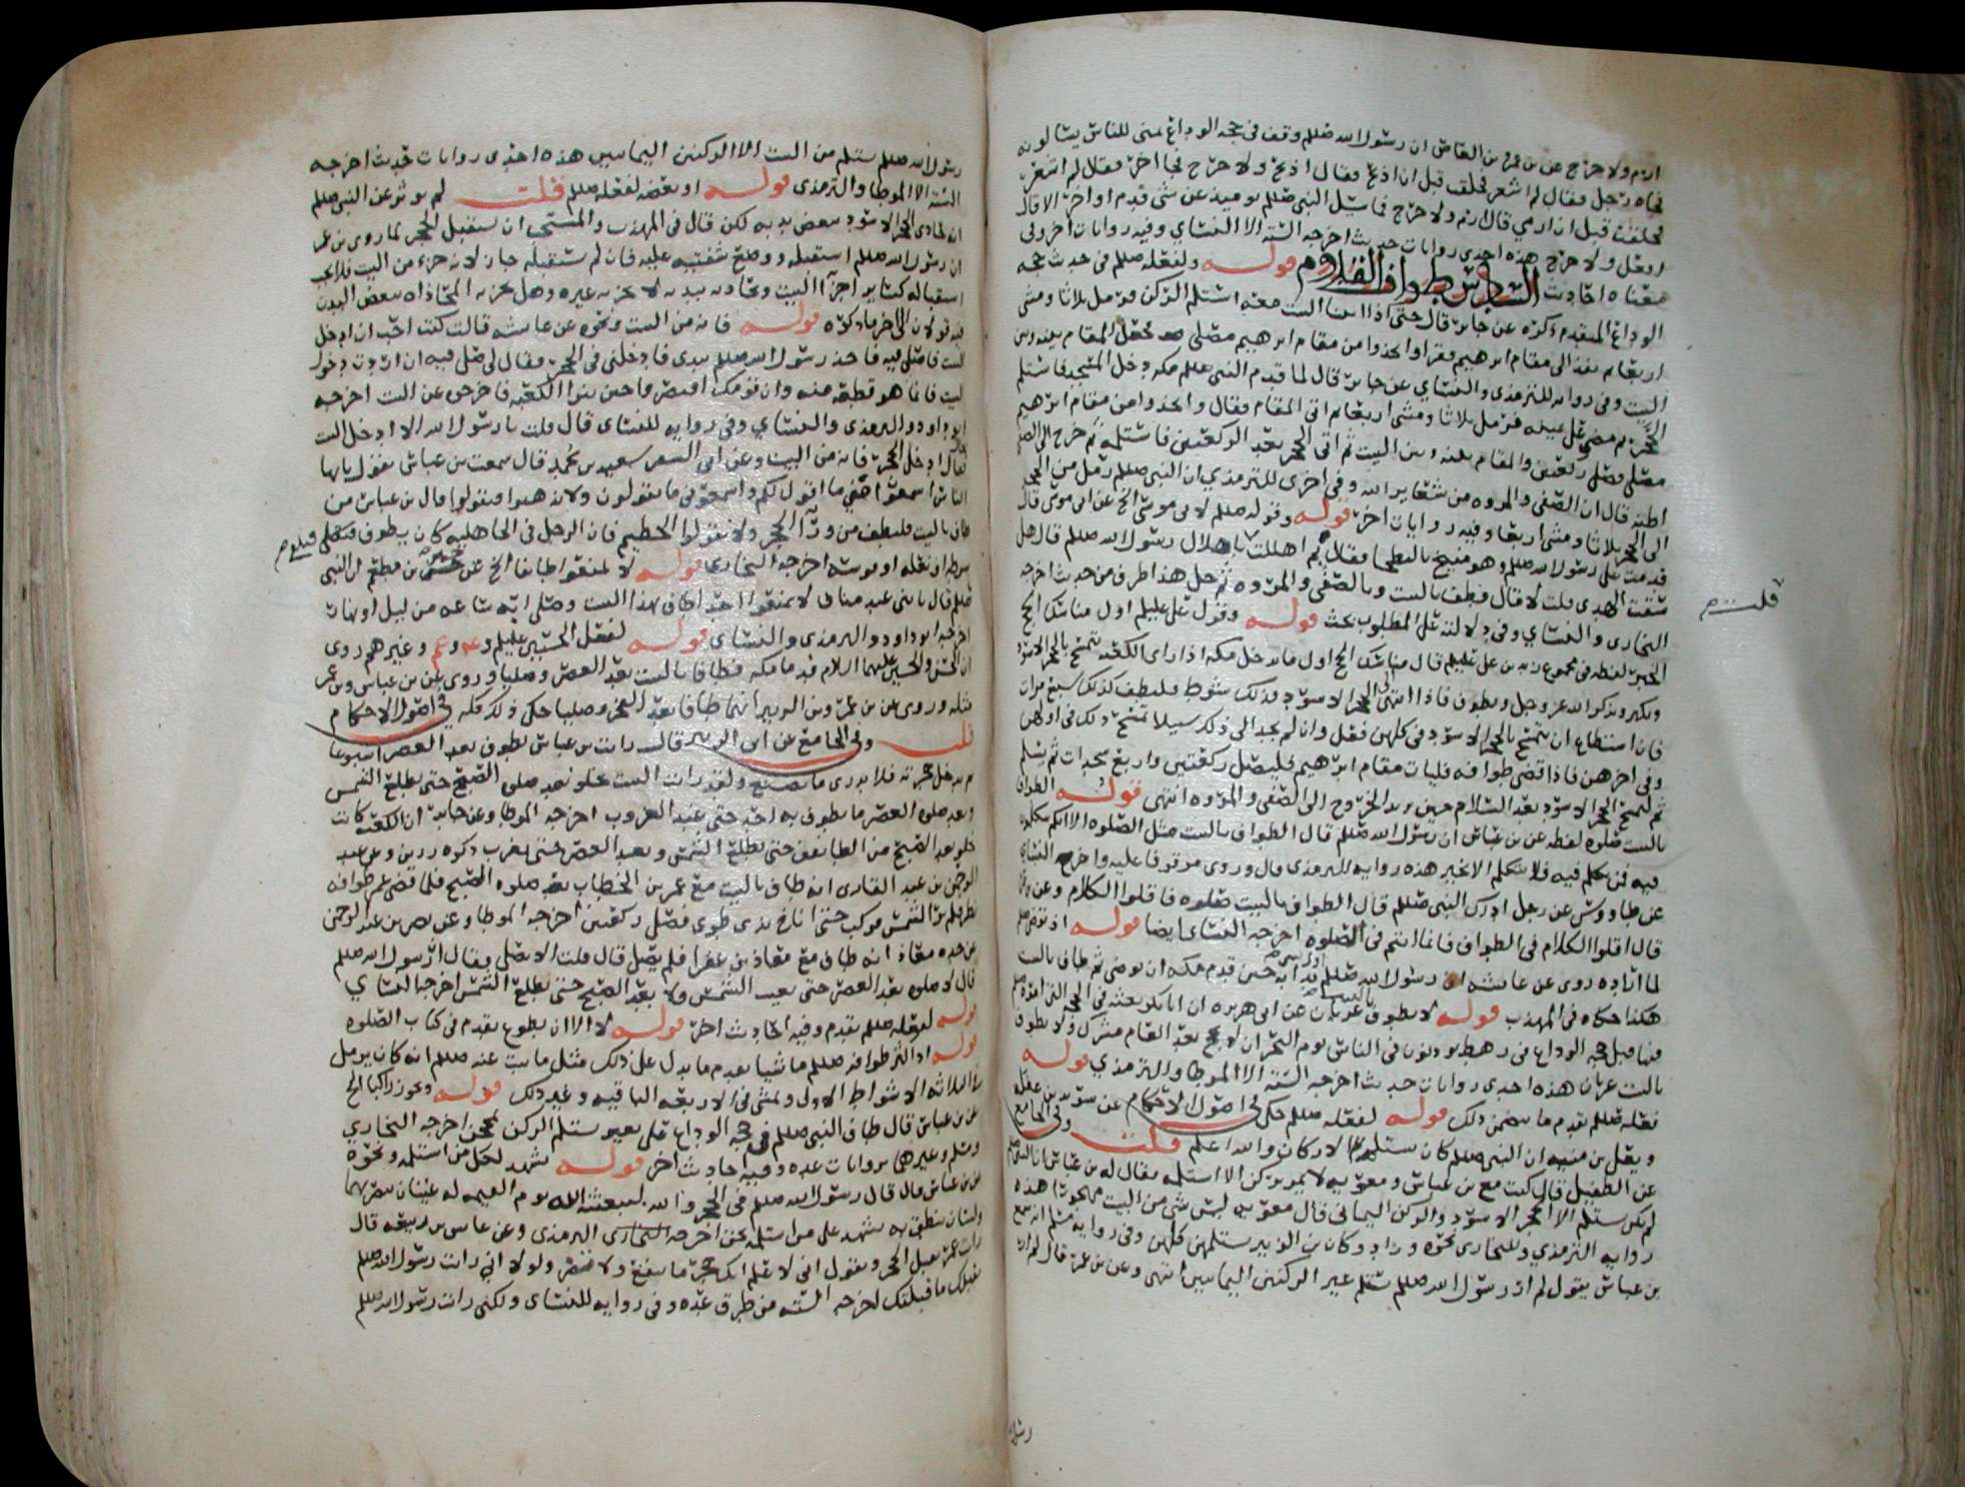 ارم ولا حرج عن بن عمرو بن العاص ان رسول الله صلعم وقف في حجه الوداع بمنى للناس يسالونه
فجاه رجل فقال لم اشعر فحلقت قبل ان اذبح فقال اذبح ولا حرج فجا اخر فقال لم اشعر
فحلقت قبل ان ارمي قال ارم ولا حرج فما سيل النبي صلعم يوميذ عن شي قدم او اخر الا قال
افعل ولا حرج هذه احدى روايات حديث اخرجه السته الا النساي وفيه روايات اخر وفي
معناه احاديث السادس طواف القدوم قوله ولفعله صلعم في حديث حجه
الوداع المتقدم ذكره عن جابر قال حتى اذا اتينا البيت معه استلم الركن فرمل ثلاثا ومشى
اربعا ثم نفذ الى مقام ابرهيم فقرا واتخذوا من مقام ابرهيم مصلى فجعل المقام بينه وبين
البيت وفي روايه للترمذي والنساي عن جابر قال لما قدم النبي صلعم مكه دخل المسجد فاستلم
الحجر ثم مضى على يمينه فرمل ثلاثا ومشى اربعا ثم اتى المقام فقال واتخذوا من مقام ابرهيم
مصلى فصلى ركعتين والمقام بينه وبين البيت ثم اتى الحجر بعد الركعتين فاستلمه ثم خرج الى الصفا
اظنه قال ان الصفى والمروه من شعاير الله وفي اخرى للترمذي ان النبي صلعم رمل من الحجر
الى الحجر ثلاثا ومشى اربعا وفيه روايات اخر قوله وقوله صلعم لابي موسى الخ عن ابي موسى قال
قدمت على رسول الله صلعم وهو منيخ بالبطحا فقال بم اهللت باهلال رسول الله صلعم قال هل
سقت الهدي قلت لا قال فطف بالبيت وبالصفى والمروه ثم حل هذا طرف من حديث اخرجه
البخاري والنساي وفي دلالته على المطلوب بحث قوله وقول علي عليلم اول مناسك الحج
الخبر لفظه في مجموع زيد بن علي عليلم قال مناسك الحج اول ما يدخل مكه اذا راى الكعبه يتمسح بالحجر الاسود
ويكبر ويذكر الله عز وجل ويطوف فاذا انتهى الى الحجر الاسود فذلك شوط فليطف كذلك سبع مرات
فان استطاع ان يتمسح بالحجر الاسود في كلهن فعل وان لم يجد الى ذلك سبيلا تمسح ذلك في اولهن
وفي اخرهن فاذا قضى طوافه فليات مقام ابرهيم فليصل ركعتين واربع سجدات ثم يسلم
ثم ليتمسح الحجر الاسود بعد السلام حين يريد الخروج الى الصفى والمروه انتهى قوله الطواف
بالبيت صلوه لفظه عن بن عباس ان رسول الله صلعم قال الطواف بالبيت مثل الصلوه الا انكم تتكلمون
فيه فمن تكلم فيه فلا يتكلم الا بخير هذه روايه الترمذي قال وروي موقوفا عليه واخرج النساي
عن طاووس عن رجل ادرك النبي صلعم قال الطواف بالبيت صلوه فاقلوا الكلام وعن بن عمر
قال اقلوا الكلام في الطواف فانما انتم في الصلوه اخرجه النساي ايضا قوله اذ توضى صلعم
لما اتاه روى عن عايشه ان رسول الله صلعم بدا به حين قدم مكه ان توضى ثم طاف بالبيت
هكذا حكاه في المهذب قوله لا يطوف بالبيت عريان عن ابي هريره ان ابا بكر بعثه في الحجه التي امره صلعم
فيها قبل حجه الوداع في رهط يوذنون في الناس يوم النحر ان لا يحج بعد العام مشرك ولا يطوف
بالبيت عريان هذه احدى روايات حديث اخرجه السته الا الموطا والترمذي قوله
لفعله صلعم تقدم ما يتضمن ذلك قوله لفعله صلعم حكى في اصول الاحكام عن سويد بن غفله
ويعلى بن منيه ان النبي صلعم كان يستلم الاركان والله اعلم قلت وفي الجامع
عن الطفيل قال كنت مع بن عباس ومعويه لا يمر بركن الا استلمه فقال له بن عباس ان النبي صلعم
لم يكن يستلم الا الحجر الاسود والركن اليماني فقال معويه ليس شي من البيت مهجورا هذه
روايه الترمذي وللبخاري نحوه وزاد وكان بن الزبير يستلمهن كلهن وفي روايه مسلم انه سمع
بن عباس يقول لم ار رسول الله صلعم يستلم غير الركنين اليمانيين انتهى وعن بن عمر قال لم ار
قلت
رسول
رسول الله صلعم يستلم من البيت الا الركنين اليمانيين هذه احدى روايات حديث اخرجه
السته الا الموطا والترمذي قوله او بعضه لفعله صلعم قلت لم يوثر عن النبي صلعم
ان يحاذي الحجر الاسود ببعض بدنه لكن قال في المهذب والمستحب ان يستقبل الحجر لما روى بن عمر
ان رسول الله صلعم استقبله ووضع شفتيه عليه فان لم يستقبله جاز لانه جزء من البيت فلا يجب
استقباله كساير اجزآ البيت ومحاذاته ببدنه لا يجزيه غيره وهل يجزيه المحاذاه ببعض البدن
فيه قولان الى اخر ما ذكره قوله فانه من البيت ونحوه عن عايشه قالت كنت احب ان ادخل
البيت فاصلي فيه فاخذ رسول الله صلعم بيدي فادخلني في الحجر وقال لي صلي فيه ان اردت دخول
البيت فانما هو قطعه منه وان قومك اقتصروا حين بنوا الكعبه فاخرجوه عن البيت اخرجه
ابو داود والترمذي والنساي وفي روايه للنساي قال قلت يا رسول الله الا ادخل البيت
فقال ادخلي الحجر فانه من البيت وعن ابي السفر سعيد بن محمد قال سمعت بن عباس يقول يايها
الناس اسمعوا مني ما اقول لكم واسمعوني ما تقولون ولا تذهبوا فتقولوا قال بن عباس من
طاف بالبيت فليطف من ورآ الحجر ولا تقولوا الحطيم فان الرجل في الجاهليه كان يحلف فيلقي
سوطه او نعله او قوسه اخرجه البخاري قوله لا تمنعوا طايفا الخ عن جبير بن مطعم ان النبي
صلعم قال يا بني عبد مناف لا تمنعوا احدا طاف بهذا البيت وصلى ايه ساعه من ليل او نهار
اخرجه ابو داود والترمذي والنساي قوله لفعل الحسنين عليلم وعم وغيرهم روى
ان الحسن والحسين عليهما السلام قدما مكه فطافا بالبيت بعد العصر وصليا وروي عن بن عباس وبن عمر
مثله وروي عن بن عمر وبن الزبير انهما طافا بعد الفجر وصليا حكى ذلك كله في اصول الاحكام
قلت وفي الجامع عن ابي الزبير قال رايت بن عباس يطوف بعد العصر اسبوعا
ثم يدخل حجرته فلا يدرى ما يصنع ولقد رايت البيت يخلو بعد صلوه الصبح حتى تطلع الشمس
وبعد صلوه العصر ما يطوف به احد حتى عند الغروب اخرجه الموطا وعن جابر ان الكعبه كانت
تخلو بعد الصبح من الطايفين حتى تطلع الشمس وبعد العصر حتى تغرب ذكره رزين وعن عبد
الرحمن بن عبد القاري انه طاف بالبيت مع عمر بن الخطاب بعد صلوه الصبح فلما قضى عمر طوافه
نظر فلم ير الشمس فركب حتى اناخ بذي طوى فصلى ركعتين اخرجه الموطا وعن نصر بن عبد الرحمن
عن جده معاذ انه طاف مع معاذ بن عفرا فلم يصل قال قلت الا تصلي فقال ان رسول الله صلعم
قال لا صلوه بعد العصر حتى تغيب الشمس ولا بعد الصبح حتى تطلع الشمس اخرجه النساي
قوله لفعله صلعم تقدم وفيه احاديث اخر قوله لا الا ان تطوع تقدم في كتاب الصلوه
قوله اذ اكثر طوافه صلعم ماشيا تقدم ما يدل على ذلك مثل ما ثبت عنه صلعم انه كان يرمل
في الثلاثه الاشواط الاول ويمشي في الاربعه الباقيه وغير ذلك قوله ويجوز راكبا الخ
عن بن عباس قال طاف النبي صلعم في حجه الوداع على بعير يستلم الركن بمحجن اخرجه البخاري
ومسلم وغيرهما بروايات عده وفيه احاديث اخر قوله تشهد لكل من استلمه ونحوه
عن بن عباس قال قال رسول الله صلعم في الحجر والله ليبعثنه الله يوم القيمه له عينان يبصر بهما
ولسان ينطق به يشهد على من استلمه بحق اخرجه الترمذي وعن عابس بن ربيعه قال
رايت عمر يقبل الحجر ويقول اني لا علم انك حجر ما تنفع ولا تضر ولولا اني رايت رسول الله صلعم
يقبلك ما قبلتك اخرجه السته من طرق عده وفي روايه للنساي ولكني رايت رسول الله صلعم